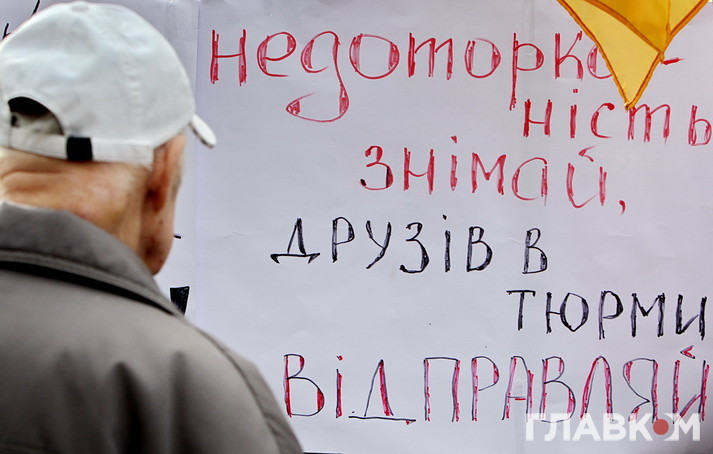 недоторка-
ність
знімай,
друзів в
тюрми
відправляй
ГЛАВКОМ